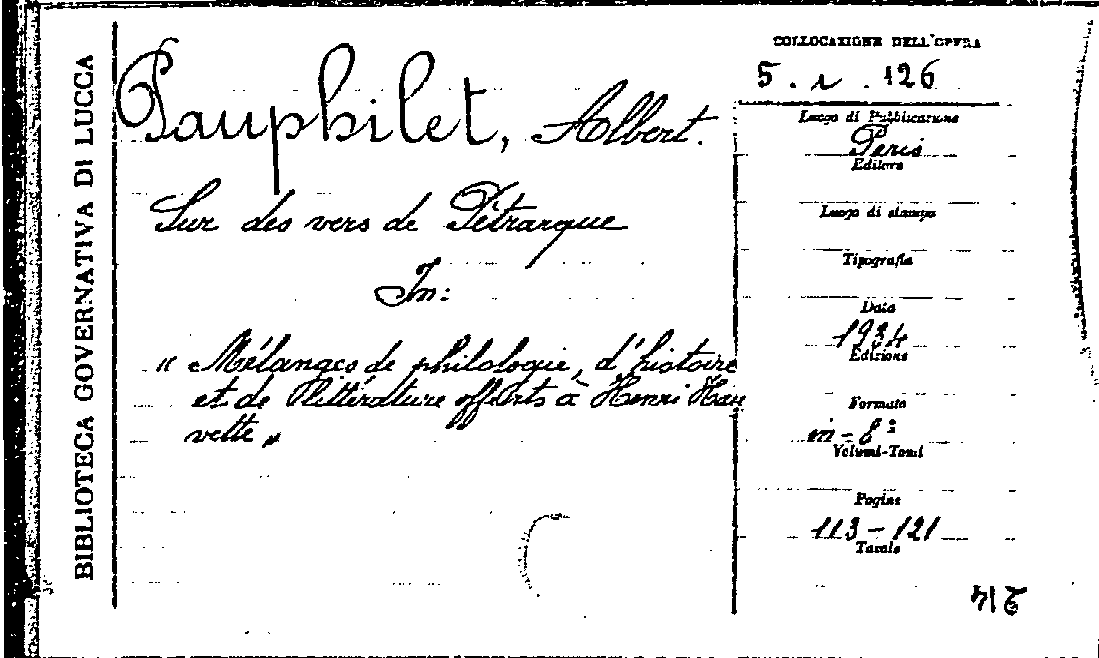 BIBLIOTECA GOVERNATIVA DI LUCCA
Pauphilet, Albert.
Sur des vers de Pétrarque
In:
« Mélanges de philologie, d'histoire
et de littérature offerts à Henri Hau
vette »
COLLOCAZIONE DELL'OPERA
5. 126
Luogo di Pubblicazione
Paris
Editore
Luogo di stampa
Tipografia
Data
1934
Edizione
Formato
in-8º
Volumi-Tomi
Pagine
113-121
Tavole